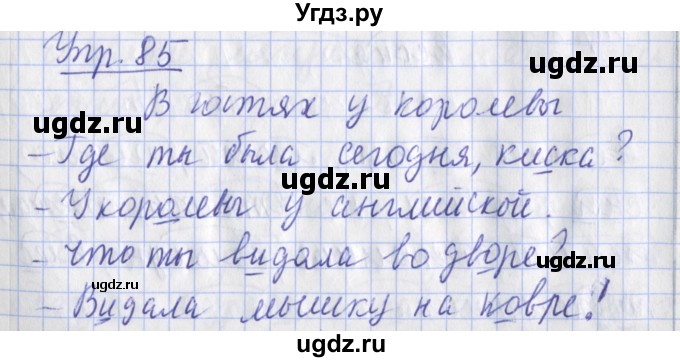 Угдз.ру
Упр. 85
ugdz.ru
ugdz.ru
В гостях у королевы
ugdz.ru
ugdz.ru
- Где ты была сегодня, киска?
ugdz.ru
- У королевы у английской.
- Что ты видала во дворе?
ugdz.ru
ugdz.ru
ugdz.ru
- Видала мышку на ковре!
ugdz.ru
ugdz.ru